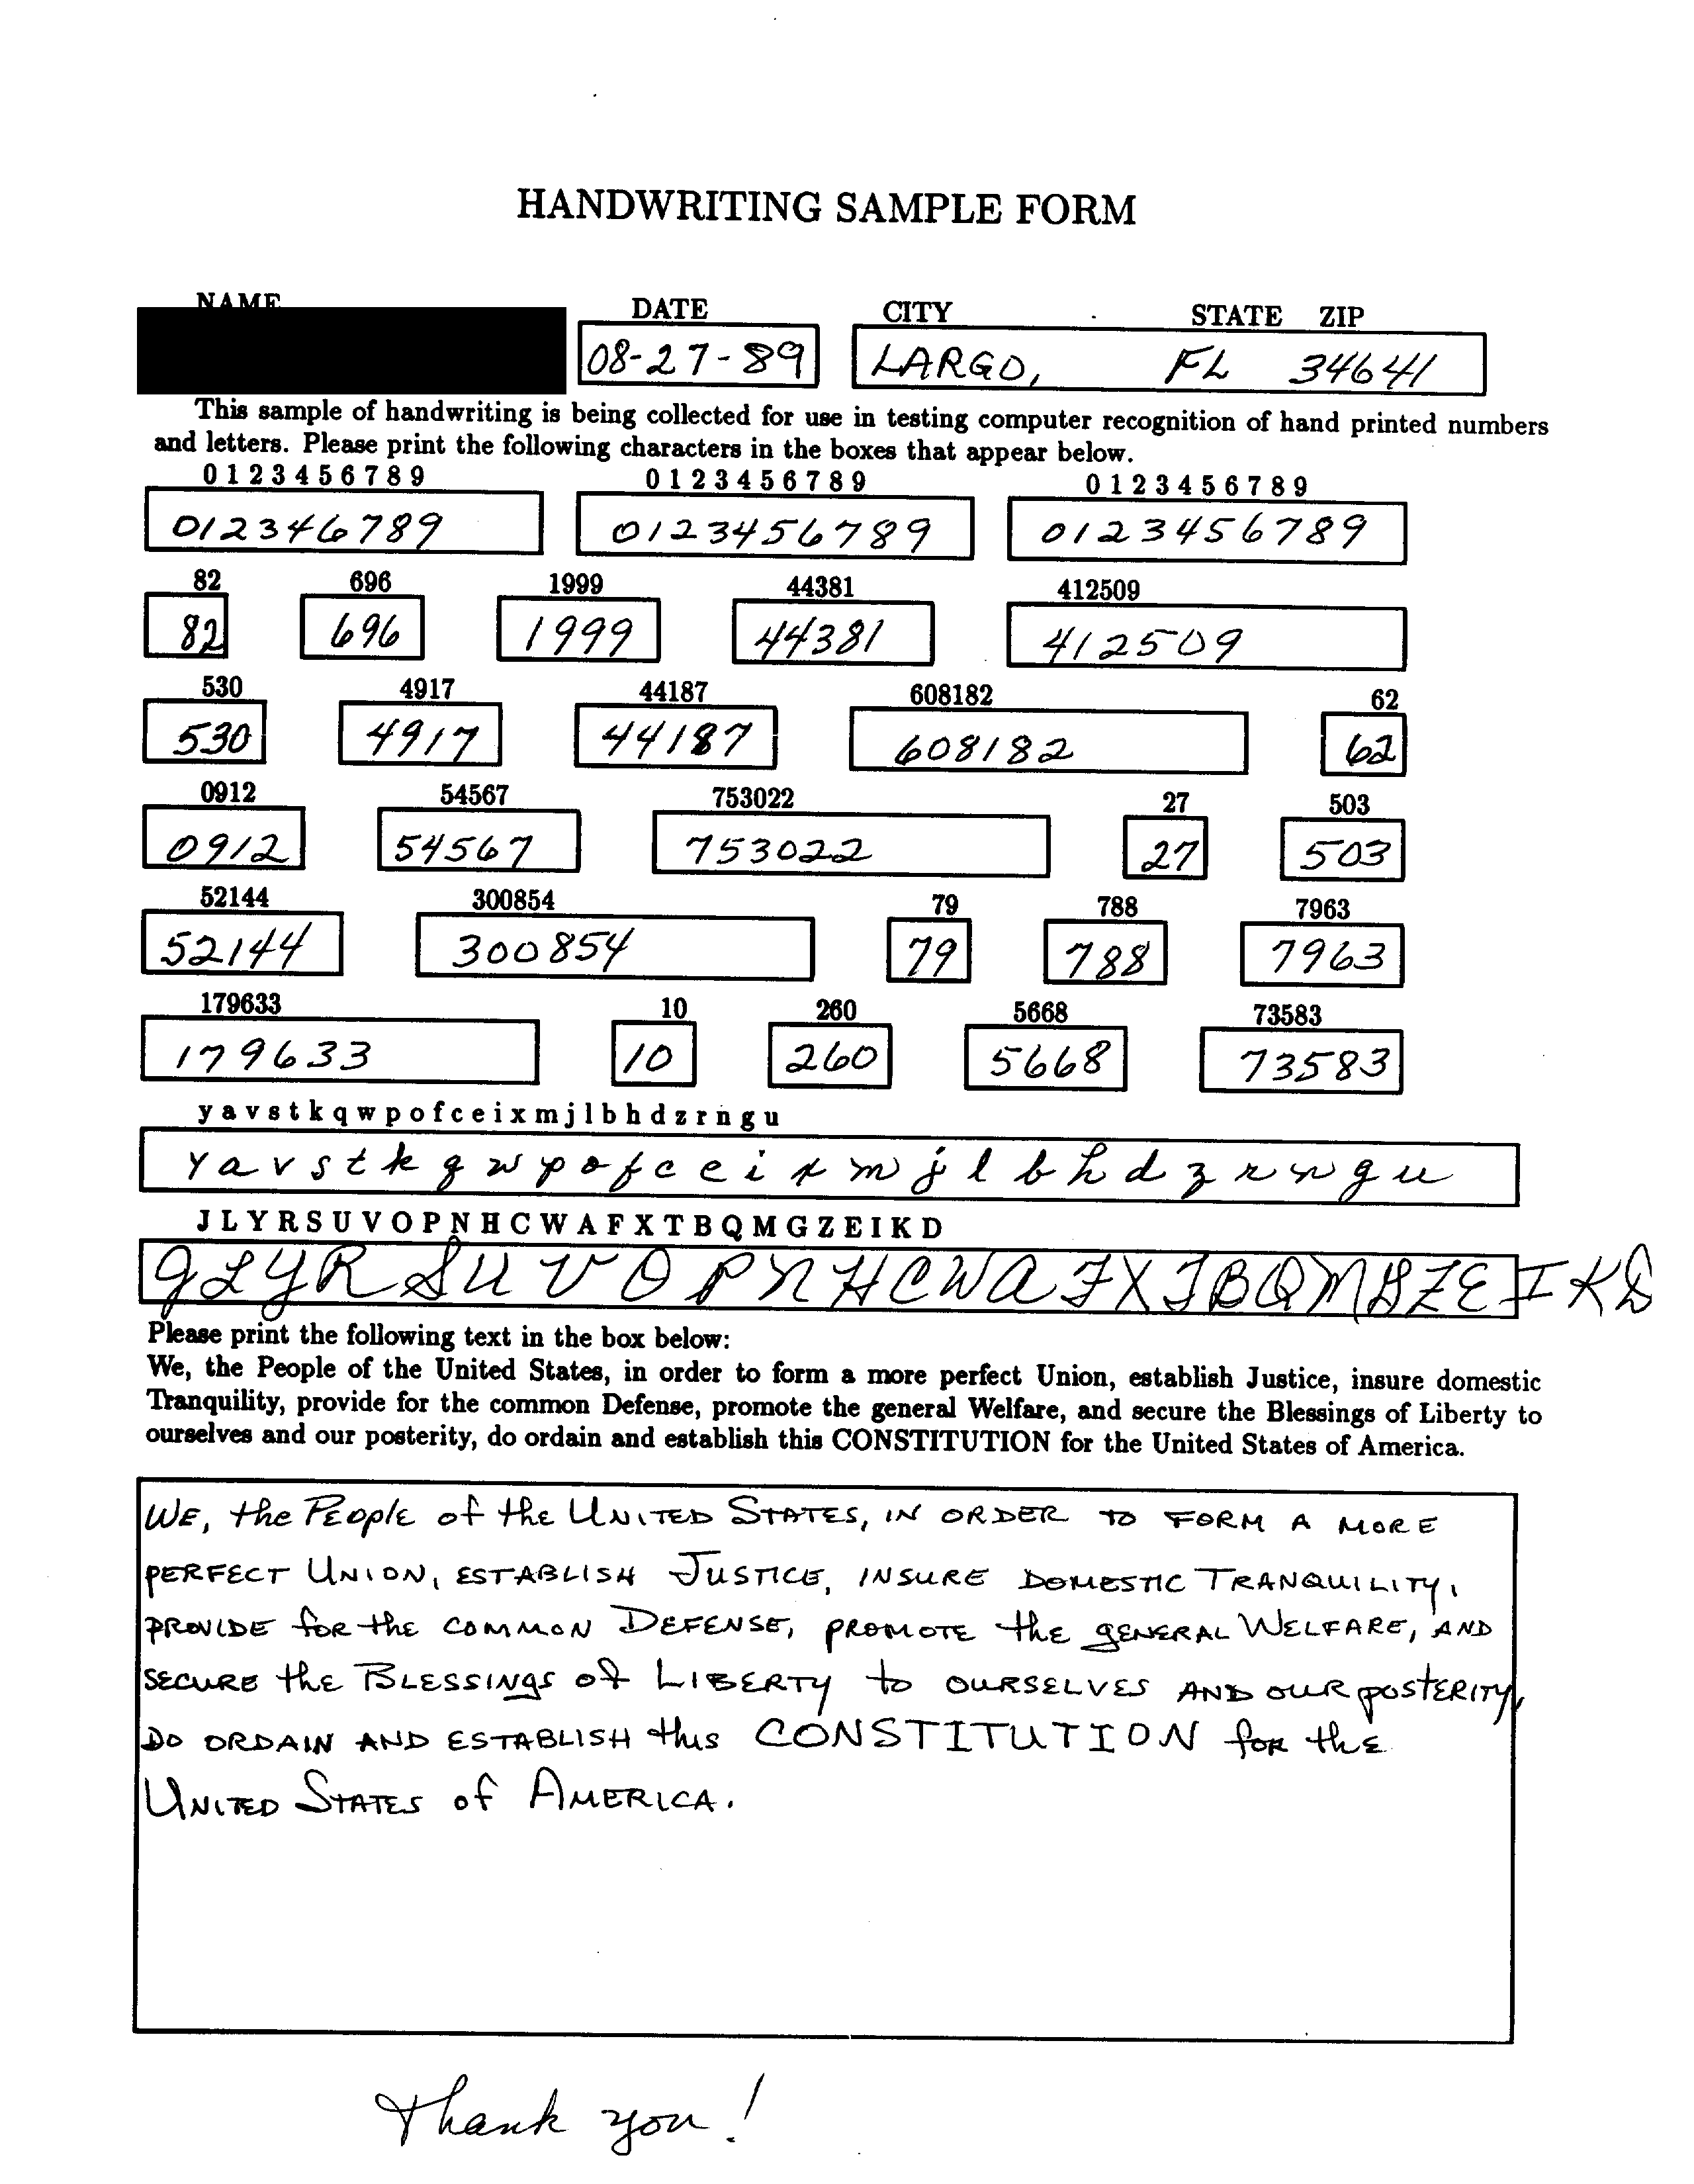 HANDWRITING SAMPLE FORM
NAME DATE CITY STATE ZIP
08-27-89 LARGO, FL 34641
This sample of handwriting is being collected for use in testing computer recognition of hand printed numbers
and letters. Please print the following characters in the boxes that appear below.
0 1 2 3 4 5 6 7 8 9 0 1 2 3 4 5 6 7 8 9 0 1 2 3 4 5 6 7 8 9
012346789 0123456789 0123456789
82 696 1999 44381 412509
82 696 1999 44381 412509
530 4917 44187 608182 62
530 4917 44187 608182 62
0912 54567 753022 27 503
0912 54567 753022 27 503
52144 300854 79 788 7963
52144 300854 79 788 7963
179633 10 260 5668 73583
179633 10 260 5668 73583
y a v s t k q w p o f c e i x m j l b h d z r n g u
y a v s t k q w p o f c e i x m j l b h d z r n g u
J L Y R S U V O P N H C W A F X T B Q M G Z E I K D
J L Y R S U V O P N H C W A F X T B Q M G Z E I K D
Please print the following text in the box below:
We, the People of the United States, in order to form a more perfect Union, establish Justice, insure domestic
Tranquility, provide for the common Defense, promote the general Welfare, and secure the Blessings of Liberty to
ourselves and our posterity, do ordain and establish this CONSTITUTION for the United States of America.
WE, the PEOplE of the UNITED STATES, IN ORDER TO FORM A MORE
PERFECT UNION, ESTABLISH JUSTICE, INSURE DOMESTIC TRANQUILITY,
PROVIDE foR the COMMON DEFENSE, PROMOTE the gENERAL WELFARE, AND
SECURE the BLESSINgS of LIBERTY to OURSELVES AND OUR POSTERITY,
DO ORDAIN AND ESTABLISH this CONSTITUTION foR the
UNITED STATES of AMERICA.
Thank you!